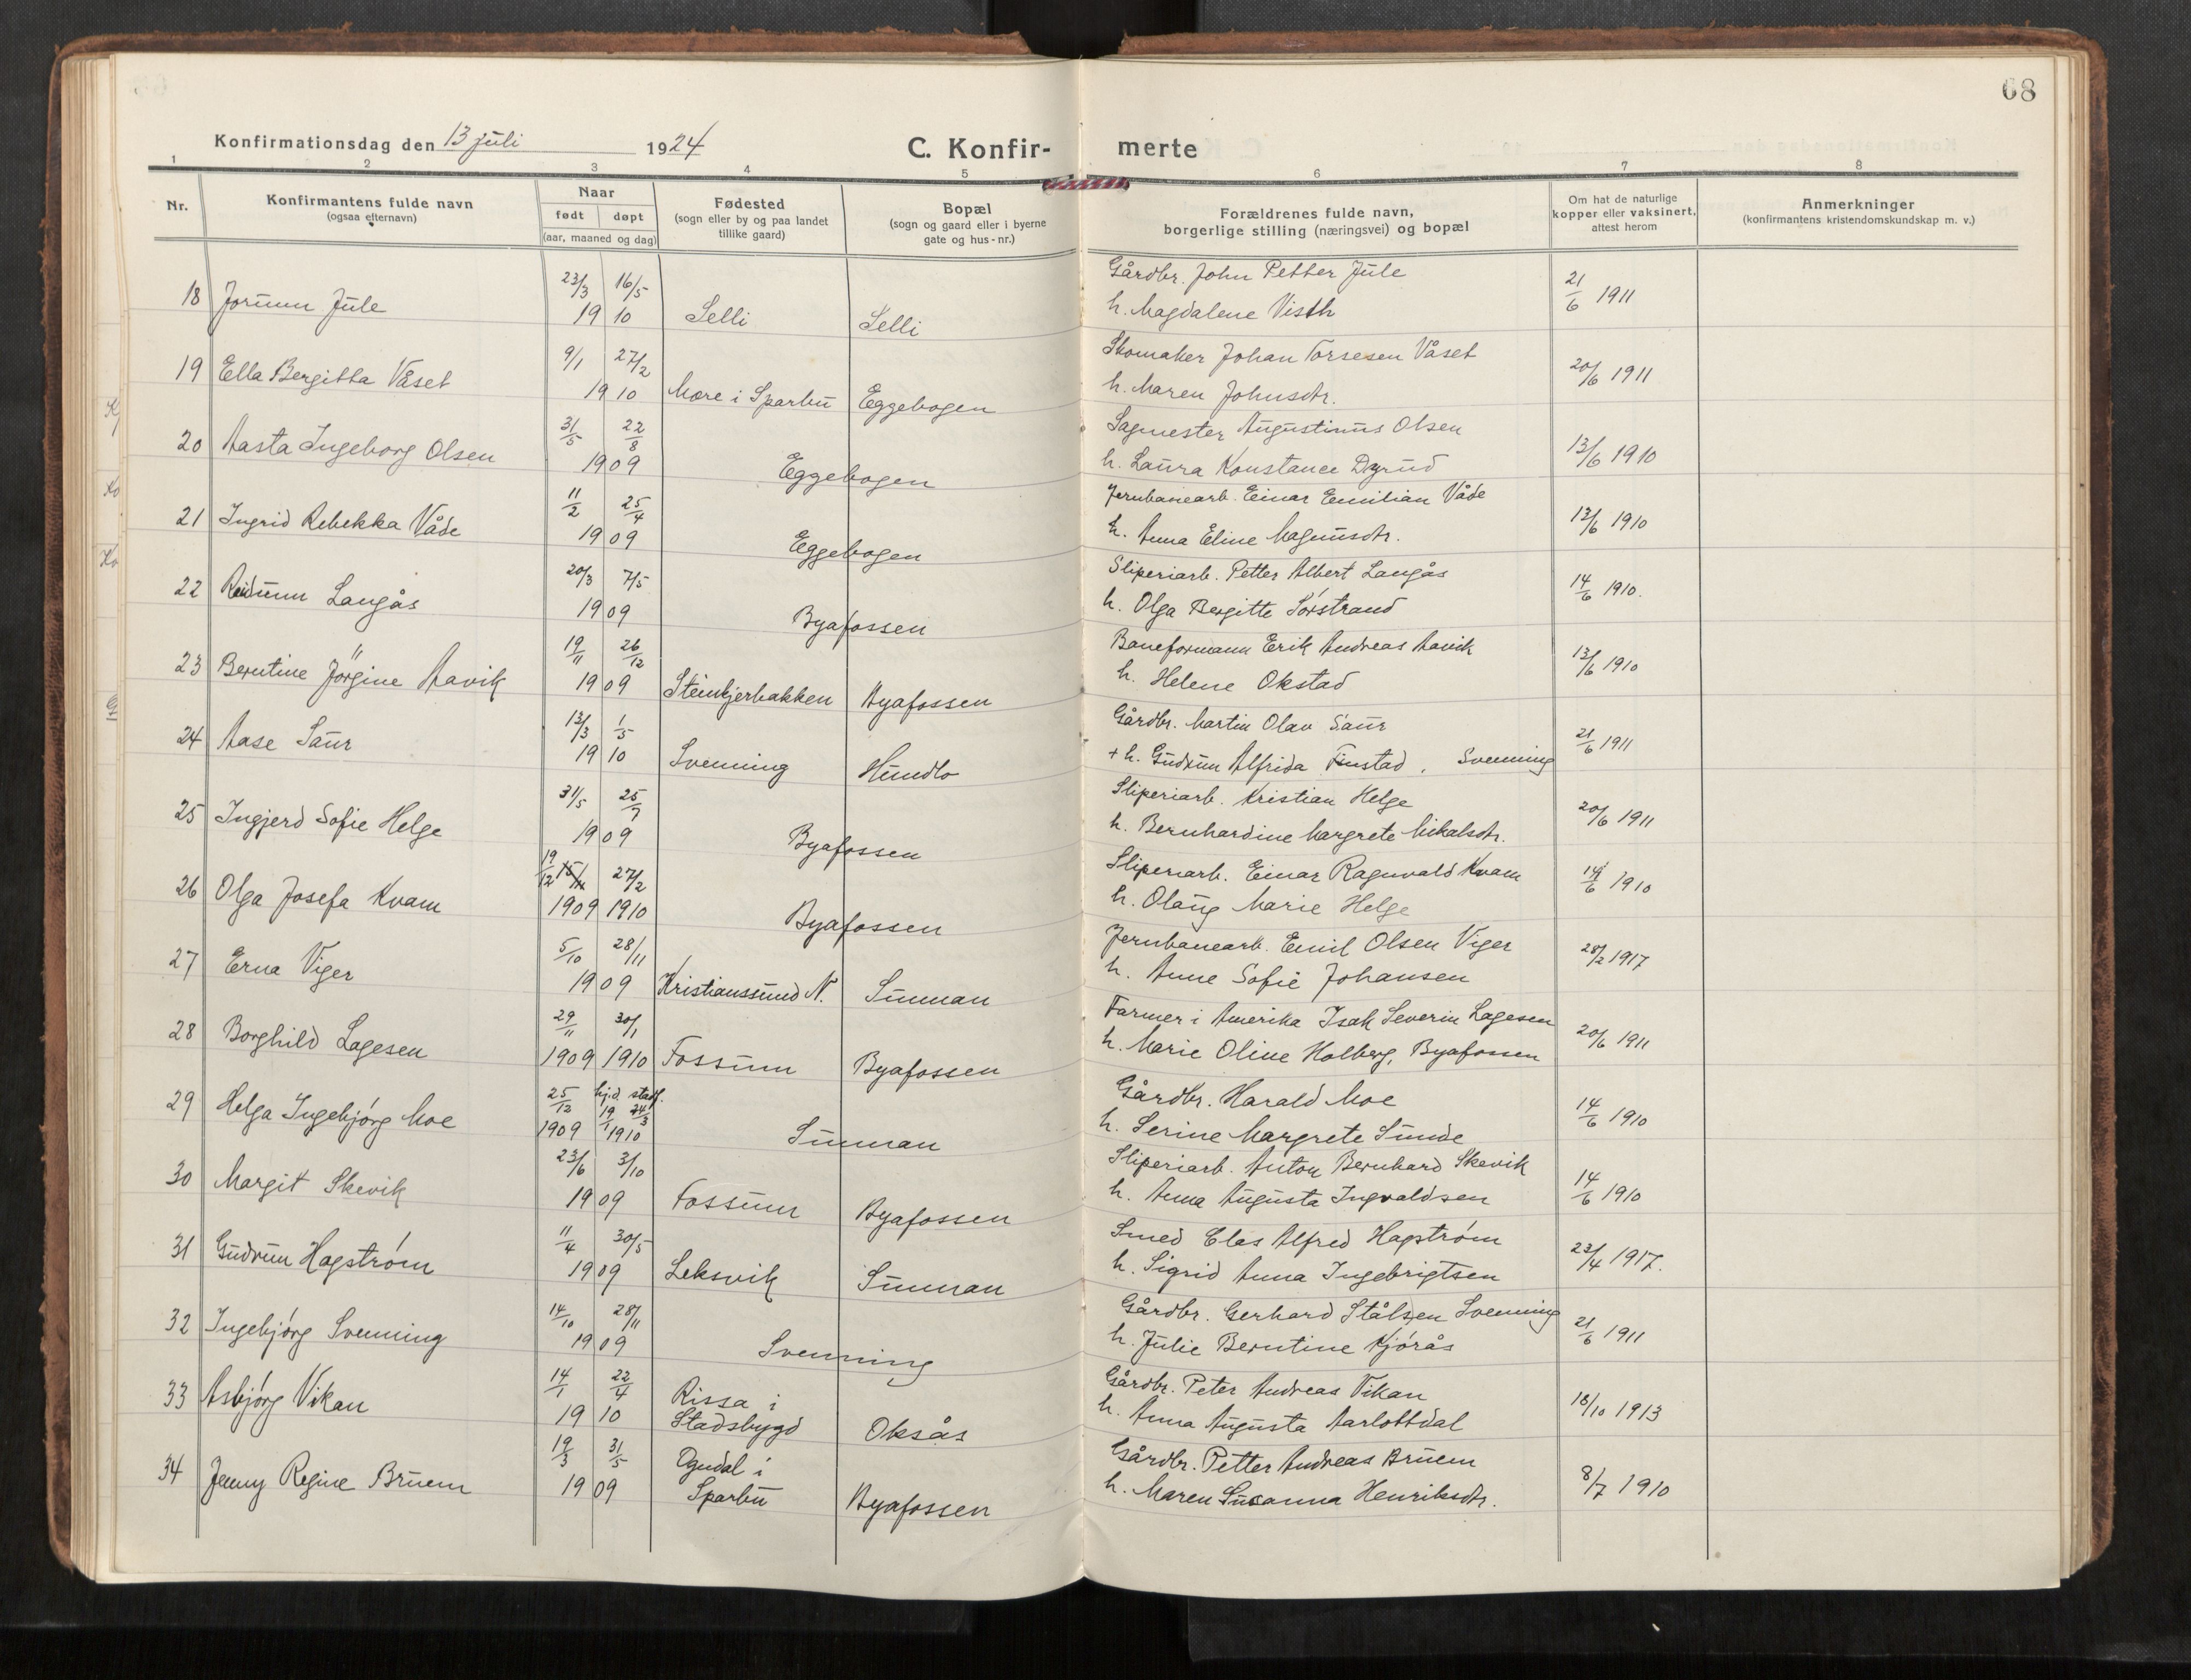 68
Konfirmationsdag den 13 juli 1924
C. Konfir- merte
1 2 3 4 5 6 7 8
Nr.
Konfirmantens fulde navn
(ogsaa efternavn)
Naar
født døpt
(aar, maaned og dag)
Fødested
(sogn eller by og paa landet
tillike gaard)
Bopæl
(sogn og gaard eller i byerne
gate og hus-nr.)
Forældrenes fulde navn,
borgerlige stilling (næringsvei) og bopæl
Om hat de naturlige
kopper eller vaksinert,
attest herom
Anmerkninger
(konfirmantens kristendomskundskap m. v.)
18 Jorunn Jule 23/3 16/5 1910 Selli Selli
Gårdbr. John Petter Jule
h. Magdalene Visth
21/6 1911
19 Ella Bergitta Våset 9/1 27/2 1910 Mære i Sparbu Eggebogen
Skomaker Johan Torsesen Våset
h. Maren Johnsdtr.
20/6 1911
20 Aasta Ingeborg Olsen 31/5 22/8 1909 Eggebogen
Sagmester Augustinus Olsen
h. Laura Konstance Dyrud
13/6 1910
21 Ingrid Rebekka Våde 11/2 25/4 1909 Eggebogen
Jernbanearb. Einar Emilian Våde
h. Anna Eline Magnusdtr.
13/6 1910
22 Reidunn Langås 20/3 7/5 1909 Byafossen
Sliperiarb. Petter Albert Langås
h. Olga Bergitte Sørstrand
14/6 1910.
23 Berntine Jørgine Aavik 19/11 26/12 1909 Steinkjerbakken Byafossen
Baneformann Erik Andreas Aavik
h. Helene Okstad
13/6 1910
24 Aase Saur 13/3 1/5 1910 Svenning Humlo
Gårdbr. Martin Olav Saur
+ h. Gudrun Alfrida Finstad, Svenning
21/6 1911
25 Ingjerd Sofie Helge 31/5 25/7 1909 Byafossen
Sliperiarb. Kristian Helge
h. Bernhardine Margrete Mikalsdtr.
20/6 1911
26 Olga Josefa Kvam 19/12 27/2 1909 1910 Byafossen
Sliperiarb. Einar Ragnvald Kvam
h. Olaug Marie Helge
14/6 1910
27 Erna Viger 5/10 28/11 1909 Kristianssund N. Sunnan
Jernbanearb. Emil Olsen Viger
h. Anne Sofie Johansen
28/2 1917
28 Borghild Lagesen 29/11 30/1 1909 1910 Fossum Byafossen
Farmer i Amerika Isak Severin Lagesen
h. Marie Oline Holberg, Byafossen
20/6 1911
29 Helga Ingebjørg Moe 25/12 hj.d. stadf. 19/1 24/3 1909 1910 Sunnan
Gårdbr. Harald Moe
h. Serine Margrete Sunde
14/6 1910
30 Margit Skevik 23/6 3/10 1909 Fossum Byafossen
Sliperiarb. Anton Bernhard Skevik
h. Anna Augusta Ingvaldsen
14/6 1910
31 Gudrun Hagstrøm 11/4 30/5 1909 Leksvik Sunnan
Smed Elas Alfred Hagstrøm
h. Sigrid Anna Ingebrigtsen
23/4 1917.
32 Ingebjørg Svenning 14/10 28/11 1909 Svenning
Gårdbr. Gerhard Stålsen Svenning
h. Julie Berntine Kjørås
21/6 1911
33 Asbjørg Vikan 14/1 22/4 1910 Rissa i Stadsbygd Oksås
Gårdbr. Peter Andreas Vikan
h. Anna Augusta Aarlottdal
18/10 1913
34 Jenny Regine Bruem 19/3 31/5 1909 Ogndal i Sparbu Byafossen
Gårdbr. Petter Andreas Bruem
h. Maren Susanna Henriksdtr.
8/7 1910